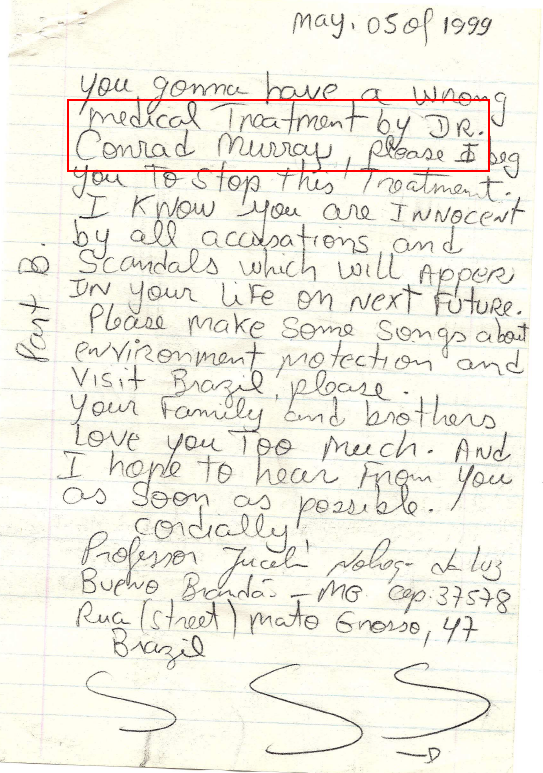 May. 05 of 1999
you gonna have a wrong
medical Treatment by DR.
Conrad Murray please I beg
you To stop this Treatment.
I know you are INNOCENT
by all accusations and
Scandals which will Apper
IN your life on next Future.
Please make some songs about
environment protection and
Visit Brazil, please.
your Family and brothers
Love you Too much. And
I hope to hear From you
as soon as possible.
cordially!
Professor Jucelino Nobrega da Luz
Bueno Brandão - MG Cep. 37578
Rua (street) Mato Grosso, 47
Brazil
Part B.
S S S